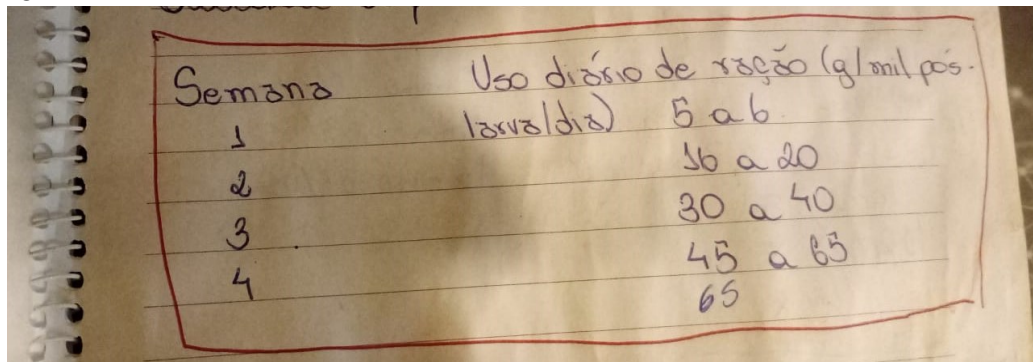 Semana Uso diário de ração (g/mil pós-
1 larva/dia) 5 a 6
2 16 a 20
3 30 a 40
4 45 a 65
65